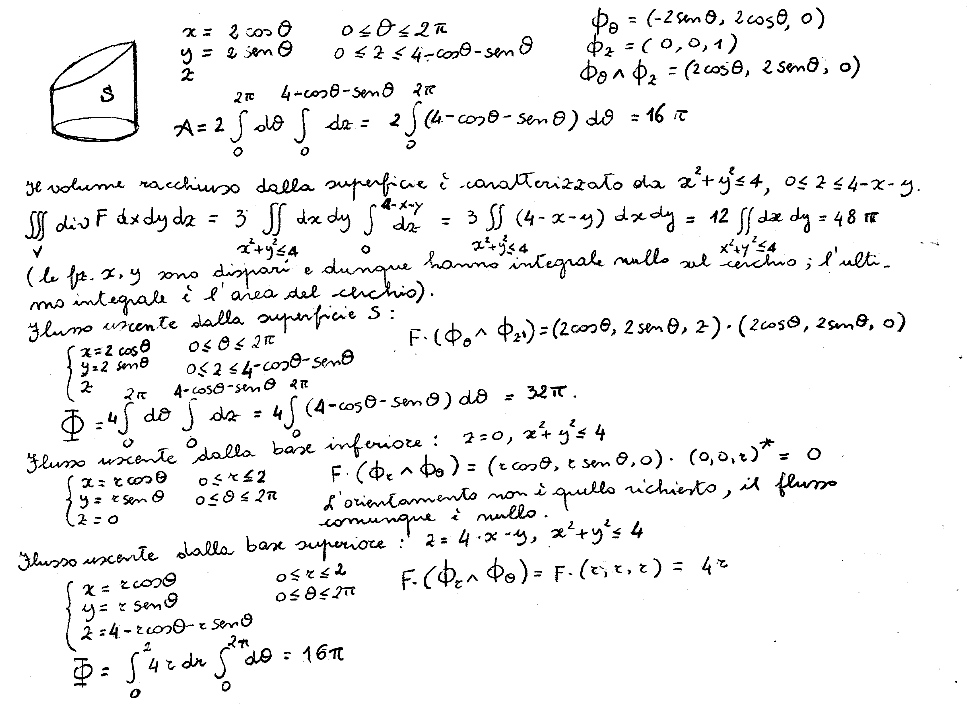 x = 2 cosθ    0 ≤ θ ≤ 2π    ϕθ = (-2senθ, 2cosθ, 0)
y = 2 senθ    0 ≤ z ≤ 4-cosθ-senθ    ϕz = (0,0,1)
z    ϕθ ∧ ϕz = (2cosθ, 2senθ, 0)
S
A = 2 ∫₀^2π dθ ∫₀^4-cosθ-senθ dz = 2 ∫₀^2π (4-cosθ-senθ) dθ = 16 π
Il volume racchiuso dalla superficie è caratterizzato da x²+y²≤4, 0≤z≤4-x-y.
∭_V div F dx dy dz = 3 ∬_x²+y²≤4 dx dy ∫₀^4-x-y dz = 3 ∬_x²+y²≤4 (4-x-y) dx dy = 12 ∬_x²+y²≤4 dx dy = 48 π
(le fz. x, y sono dispari e dunque hanno integrale nullo sul cerchio; l'ulti-
mo integrale è l'area del cerchio).
Flusso uscente dalla superficie S:
x = 2 cosθ    0 ≤ θ ≤ 2π    F·(ϕθ ∧ ϕz) = (2cosθ, 2senθ, z)·(2cosθ, 2senθ, 0)
y = 2 senθ    0 ≤ z ≤ 4-cosθ-senθ
z
Φ = 4 ∫₀^2π dθ ∫₀^4-cosθ-senθ dz = 4 ∫₀^2π (4-cosθ-senθ) dθ = 32π.
Flusso uscente dalla base inferiore: z=0, x²+y² ≤ 4
x = r cosθ    0 ≤ r ≤ 2    F·(ϕr ∧ ϕθ) = (r cosθ, r senθ, 0)·(0,0,r)* = 0
y = r senθ    0 ≤ θ ≤ 2π    L'orientamento non è quello richiesto, il flusso
z = 0    comunque è nullo.
Flusso uscente dalla base superiore: z = 4-x-y, x²+y² ≤ 4
x = r cosθ    0 ≤ r ≤ 2    F·(ϕr ∧ ϕθ) = F·(r, r, r) = 4r
y = r senθ    0 ≤ θ ≤ 2π
z = 4-r cosθ-r senθ
Φ = ∫₀² 4r dr ∫₀^2π dθ = 16π